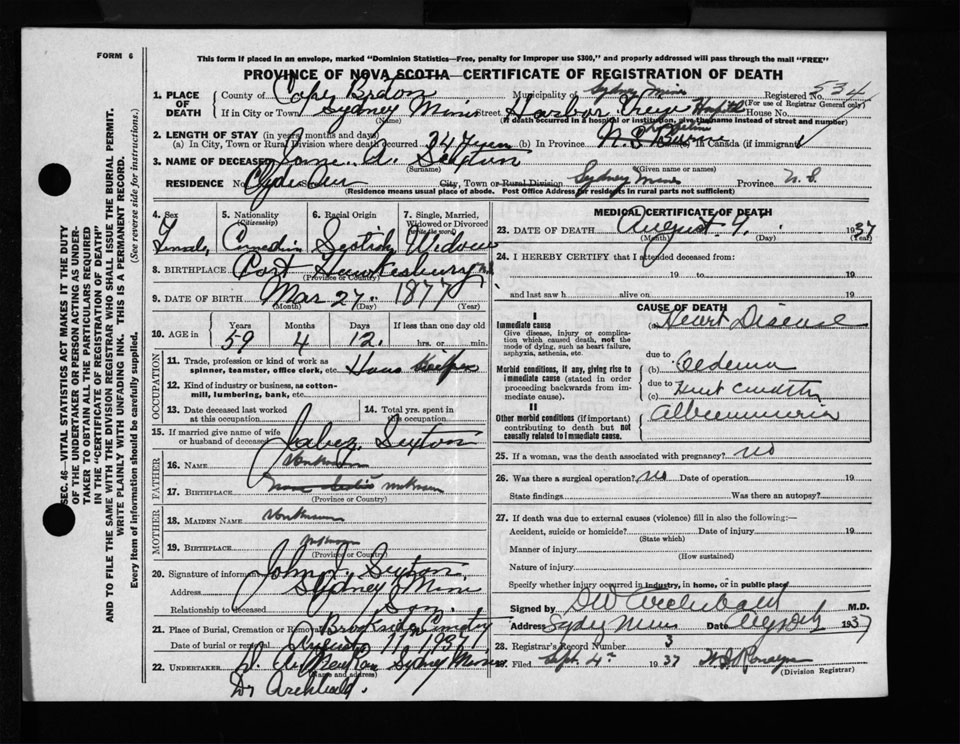 FORM 6
This form if placed in an envelope, marked "Dominion Statistics—Free, penalty for improper use $300," and properly addressed will pass through the mail "FREE"
PROVINCE OF NOVA SCOTIA—CERTIFICATE OF REGISTRATION OF DEATH
1. PLACE OF DEATH County of Cape Breton Municipality of Sydney Mines Registered No. 534
(For use of Registrar General only)
If in City or Town Sydney Mines Street Harbor View Hospital House No.
(Name) (If death occurred in a hospital or institution, give the name instead of street and number)
2. LENGTH OF STAY (in years, months and days)
(a) In City, Town or Rural Division where death occurred 34 Years (b) In Province N.S. (c) In Canada (if immigrant)
3. NAME OF DECEASED Jane A. Sexton
(Surname) (Given name or names)
RESIDENCE No. Clyde Ave City, Town or Rural Division Sydney Mines Province N.S.
(Residence means usual place of abode. Post Office Address for residents in rural parts not sufficient)
4. Sex Female
5. Nationality (Citizenship) Canadian
6. Racial Origin Scotish
7. Single, Married, Widowed or Divorced (write the word) Widow
8. BIRTHPLACE Port Hawkesbury N.S.
(Province or Country)
9. DATE OF BIRTH Mar 27 1877
(Month) (Day) (Year)
10. AGE in Years 59 Months 4 Days 12 If less than one day old hrs. or min.
OCCUPATION
11. Trade, profession or kind of work as spinner, teamster, office clerk, etc. House Keeper
12. Kind of industry or business, as cotton-mill, lumbering, bank, etc.
13. Date deceased last worked at this occupation
14. Total yrs. spent in this occupation
15. If married give name of wife or husband of deceased Jabez Sexton
FATHER
16. NAME Unknown
17. BIRTHPLACE Nova Scotia unknown
(Province or Country)
MOTHER
18. MAIDEN NAME Unknown
19. BIRTHPLACE unknown
(Province or Country)
20. Signature of informant John J. Sexton
Address Sydney Mines
Relationship to deceased Son
21. Place of Burial, Cremation or Removal Brookside Cemetry
Date of burial or removal August 11th 1937
22. UNDERTAKER Sydney Mines
(Name and address)
Dr Archibald.
MEDICAL CERTIFICATE OF DEATH
23. DATE OF DEATH August 9. 1937
(Month) (Day) (Year)
24. I HEREBY CERTIFY that I attended deceased from:
19 to 19
and last saw h alive on 19
CAUSE OF DEATH
I
Immediate cause (a) Heart Disease
Give disease, injury or complication which caused death, not the mode of dying, such as heart failure, asphyxia, asthenia, etc.
due to
Morbid conditions, if any, giving rise to immediate cause (stated in order proceeding backwards from immediate cause). (b) Oedema
due to
(c) Heart condition
II
Other morbid conditions (if important) contributing to death but not causally related to immediate cause. Albuminuria
25. If a woman, was the death associated with pregnancy? no
26. Was there a surgical operation? no Date of operation 19
State findings Was there an autopsy?
27. If death was due to external causes (violence) fill in also the following:—
Accident, suicide or homicide? Date of injury 19
(State which)
Manner of injury
(How sustained)
Nature of injury
Specify whether injury occurred in industry, in home, or in public place
Signed by DW Archibald M.D.
Address Sydney Mines Date 1937
28. Registrar's Record Number 3
29. Filed Sept. 4th 1937
(Division Registrar)
SEC. 46—VITAL STATISTICS ACT MAKES IT THE DUTY
OF THE UNDERTAKER OR PERSON ACTING AS UNDER-
TAKER TO OBTAIN ALL THE PARTICULARS REQUIRED
IN THE "CERTIFICATE OF REGISTRATION OF DEATH"
AND TO FILE THE SAME WITH THE DIVISION REGISTRAR WHO SHALL ISSUE THE BURIAL PERMIT.
WRITE PLAINLY WITH UNFADING INK. THIS IS A PERMANENT RECORD.
Every item of information should be carefully supplied. (See reverse side for instructions.)